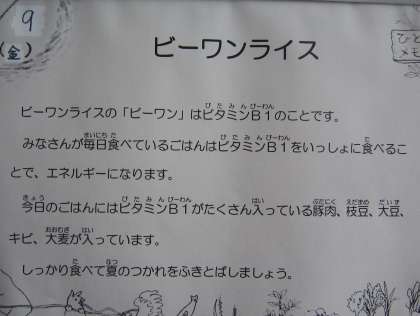 9
(金)
ビーワンライス
ひと
メモ
ビーワンライスの「ビーワン」はビタミンB1のことです。
みなさんが毎日食べているごはんはビタミンB1をいっしょに食べるこ
とで、エネルギーになります。
今日のごはんにはビタミンB1がたくさん入っている豚肉、枝豆、大豆、
キビ、大麦が入っています。
しっかり食べて夏のつかれをふきとばしましょう。